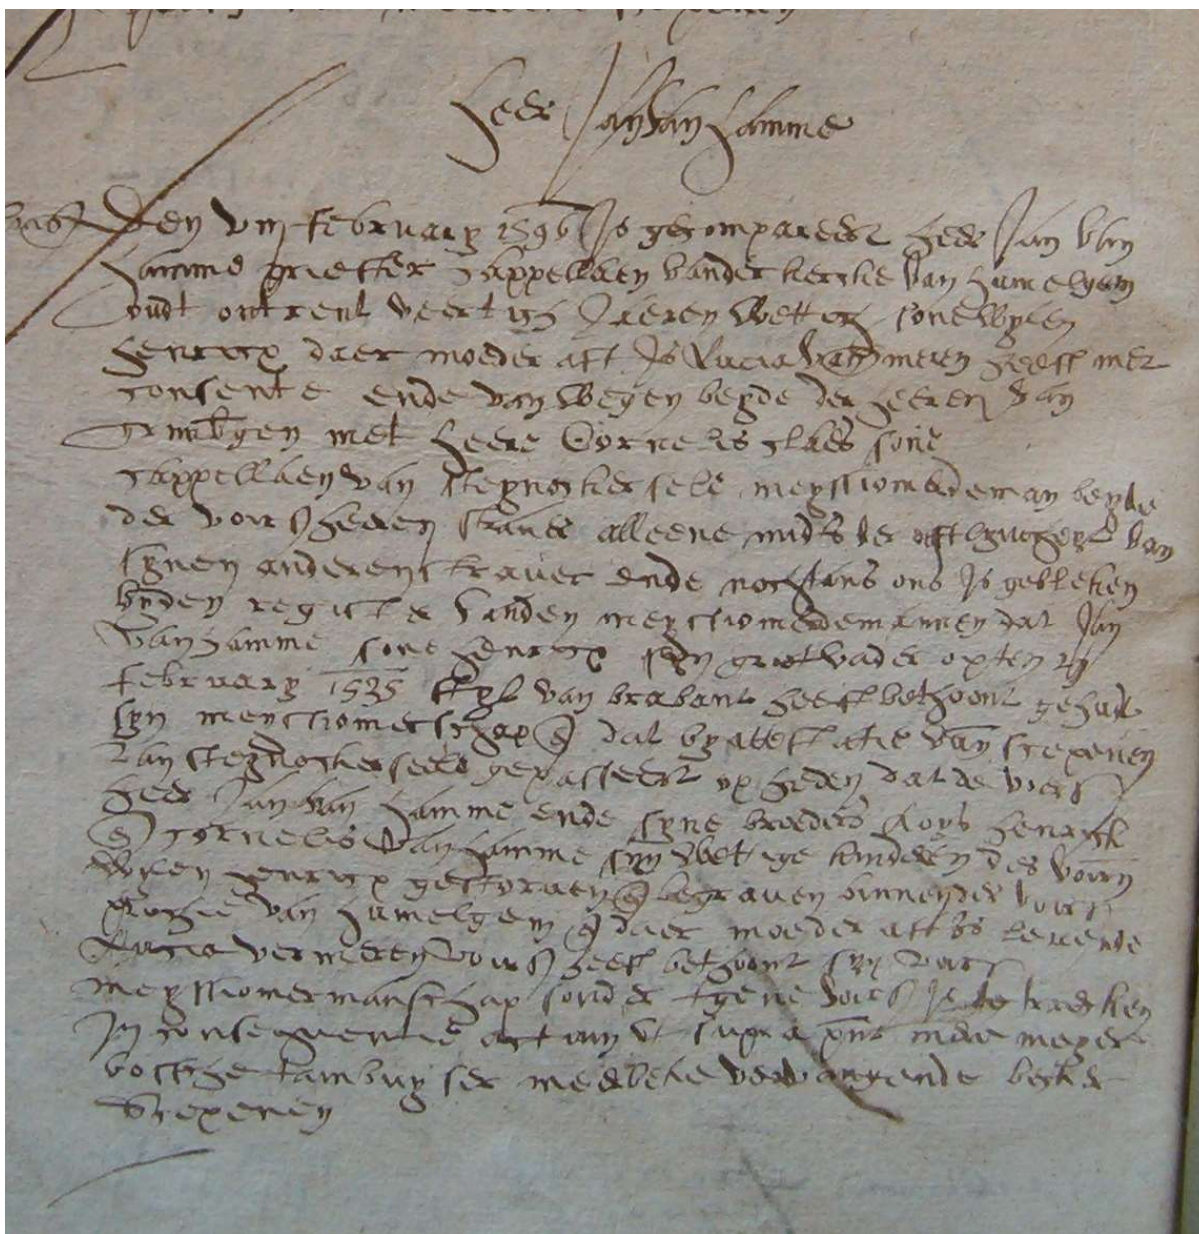 Heer Jan van Hamme
Den viij februarij 1596 Is gecompareert heer Jan van
Hamme priester Cappellaen vander kercke van Humelgem
oudt ontrent veertich Jaeren wettich sone wylen
Henricx daer moeder aff Is Lucia van meren heeft met
consente ende van wegen beyde der heeren van
Grimbgen met heere Cornelis claes sone
Cappellaen van steynockersele meyssiomederman beyde
der voirs heeren alleene midts de van
synen anderen ende nochtans ons Is gebleken
byden register vanden meyssiomedemannen dat Jan
van Hamme sone Henricx syn grootvader opten
februarij 1535 styl van brabant heeft bethoont gehadt
syn dat by attestatie van scepenen
van steynockerseele gepasseert op heden dat de voers
heer Jan van Hamme ende syne broeders Loys Henrick
Cornelis van Hamme syn wettige kinderen des voirn
wylen Henricx gestorven begraven binnen der voirs
prochie van Humelgem daer moeder aff is levende
Lucia vermeren voirs heeft bethoont syn voirs
meyssiomermanschap sonder tgene voirs Is te trecken
In consequentie actum ut supra pnt meyer
bossche tambuyser meerbeke vervangende
Scepenen